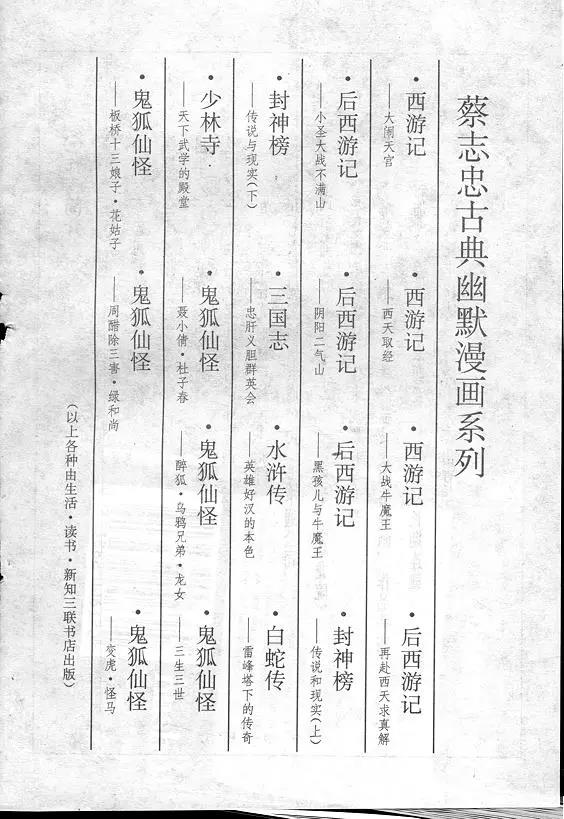 蔡志忠古典幽默漫画系列
•西游记
——大闹天宫
•西游记
——西天取经
•西游记
——大战牛魔王
•后西游记
——再赴西天求真解
•后西游记
——小圣大战不满山
•后西游记
——阴阳二气山
•后西游记
——黑孩儿与牛魔王
•封神榜
——传说和现实(上)
•封神榜
——传说与现实(下)
•三国志
——忠肝义胆群英会
•水浒传
——英雄好汉的本色
•白蛇传
——雷峰塔下的传奇
•少林寺
——天下武学的殿堂
•鬼狐仙怪
——聂小倩·杜子春
•鬼狐仙怪
——醉狐·乌鸦兄弟·龙女
•鬼狐仙怪
——三生三世
•鬼狐仙怪
——板桥十三娘子·花姑子
•鬼狐仙怪
——周醋除三害·绿和尚
•鬼狐仙怪
——变虎·怪马
(以上各种由生活·读书·新知三联书店出版)